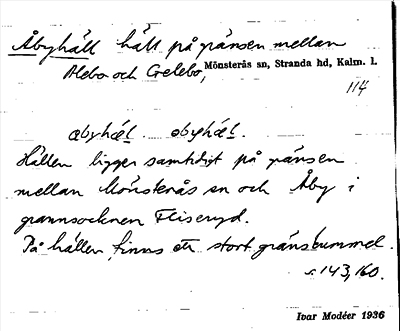 Åbyhäll häll på gränsen mellan
Alebo och Crelebo, Mönsterås sn, Stranda hd, Kalm. l.
114
åbyhæl. åbyhæl.
Hällen ligger samtidigt på gränsen
mellan Mönsterås sn och Åby i
grannsocknen Fliseryd.
På hällen finns ett stort gränskummel.
s. 143, 160.
Ivar Modéer 1936